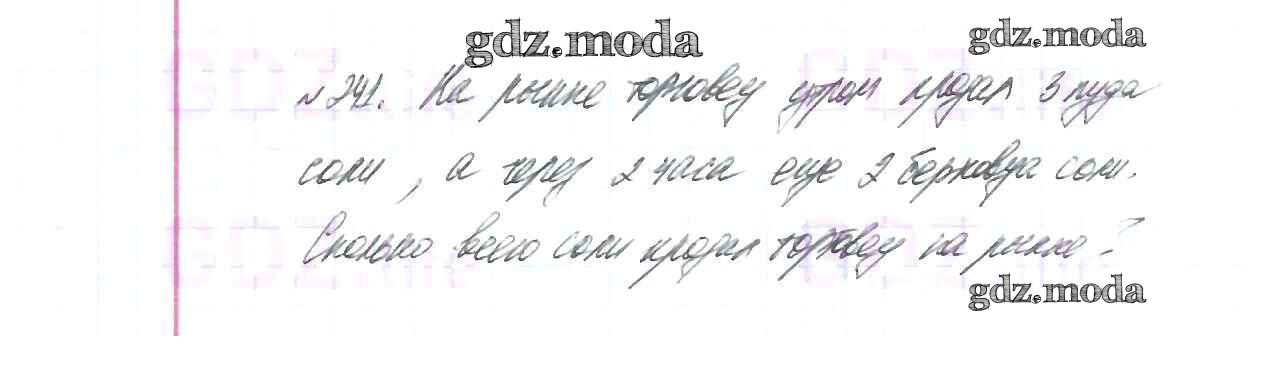 gdz.moda
gdz.moda
№ 241. На рынке торговец утром продал 3 пуда
соли, а через 2 часа еще 2 берковца соли.
Сколько всего соли продал торговец на рынке?
gdz.moda